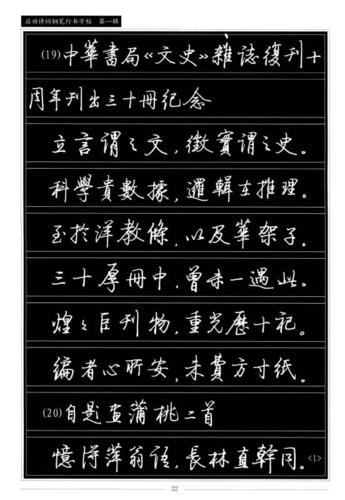 启功诗词钢笔行书字帖 第一辑
(19)中華書局《文史》雜誌復刊十
周年刊出三十冊纪念
立言谓之文,徵實谓之史。
科學貴數據,邏輯在推理。
至於洋教條,以及華架子。
三十厚冊中,曾未一遇此。
煌〻巨刊物,重光歷十祀。
编者心所安,未費方寸纸。
(20)自題畫蒲桃二首
憶得萍翁語,長林直幹同。<1>
22